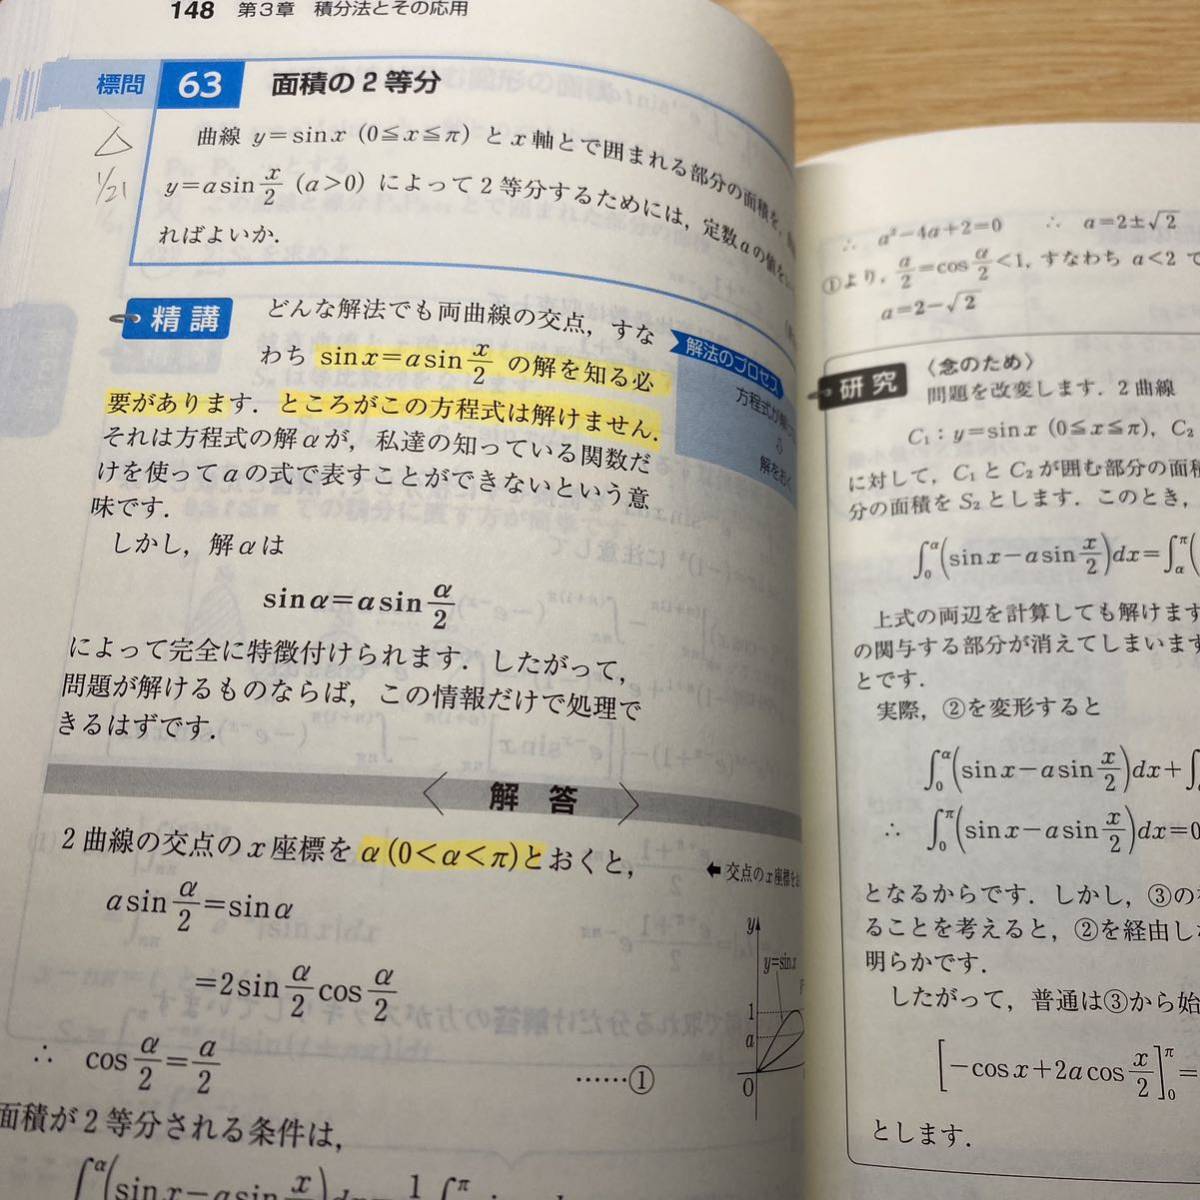 148 第3章 積分法とその応用
標問 63 面積の2等分
曲線 y=sinx (0≦x≦π) とx軸とで囲まれる部分の面積を,
y=asin x/2 (a>0) によって2等分するためには,定数aの値を
ればよいか.
△
1/21
精講 どんな解法でも両曲線の交点,すな
わち sinx=asin x/2 の解を知る必
要があります.ところがこの方程式は解けません.
それは方程式の解αが,私達の知っている関数だ
けを使ってaの式で表すことができないという意
味です.
しかし,解αは
sinα=asin α/2
によって完全に特徴付けられます.したがって,
問題が解けるものならば,この情報だけで処理で
きるはずです.
解法のプロセス
方程式が解
⇩
解をおく
解答
2曲線の交点のx座標をα(0<α<π)とおくと,
asin α/2=sinα
=2sin α/2 cos α/2
∴ cos α/2=a/2 ……①
面積が2等分される条件は,
∫0α(sinx-asin x/2)dx=1/2∫π
←交点のx座標を
y
y=sinx
1
a
O
∴ a²-4a+2=0 ∴ a=2±√2
①より, a/2=cos α/2<1, すなわち a<2 で
a=2-√2
研究 〈念のため〉
問題を改変します.2曲線
C₁:y=sinx (0≦x≦π), C₂
に対して,C₁とC₂が囲む部分の面積
分の面積をS₂とします.このとき,
∫0α(sinx-asin x/2)dx=∫απ(
上式の両辺を計算しても解けます
の関与する部分が消えてしまいます
とです.
実際,②を変形すると
∫0α(sinx-asin x/2)dx+∫
∴ ∫0π(sinx-asin x/2)dx=0
となるからです.しかし,③の
ることを考えると,②を経由し
明らかです.
したがって,普通は③から始
[-cosx+2acos x/2]0π=
とします.